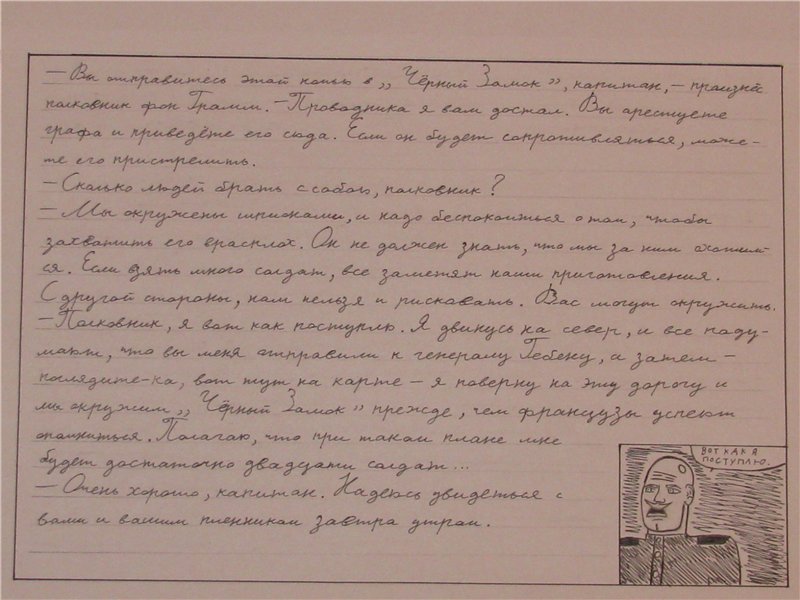 — Вы отправитесь этой ночью в „Чёрный Замок”, капитан, — произнёс
полковник фон Грамм. — Проводника я вам достал. Вы арестуете
графа и приведёте его сюда. Если он будет сопротивляться, може-
те его пристрелить.
— Сколько людей брать с собою, полковник?
— Мы окружены шпионами, и надо беспокоиться о том, чтобы
захватить его врасплох. Он не должен знать, что мы за ним охотим-
ся. Если взять много солдат, все заметят наши приготовления.
С другой стороны, нам нельзя и рисковать. Вас могут окружить.
— Полковник, я вот как поступлю. Я двинусь на север, и все поду-
мают, что вы меня отправили к генералу Гебену, а затем —
поглядите-ка, вот тут на карте — я поверну на эту дорогу и
мы окружим „Чёрный Замок” прежде, чем французы успеют
опомниться. Полагаю, что при таком плане мне
будет достаточно двадцати солдат...
— Очень хорошо, капитан. Надеюсь увидеться с
вами и вашим пленником завтра утром.
ВОТ КАК Я
ПОСТУПЛЮ.